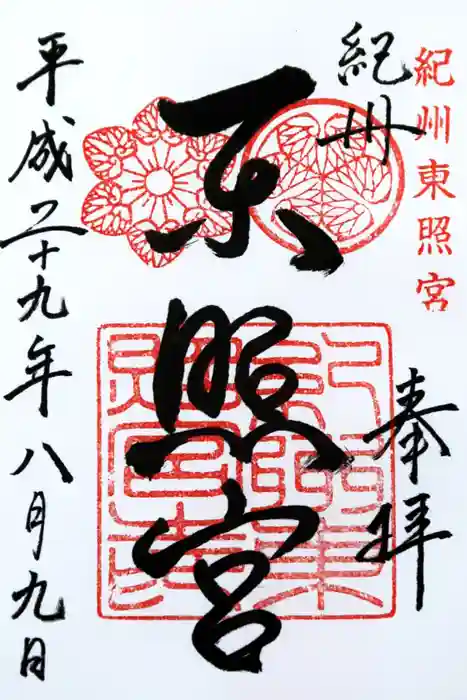 紀州東照宮
奉拝
紀州
東照宮
平成二十九年八月九日